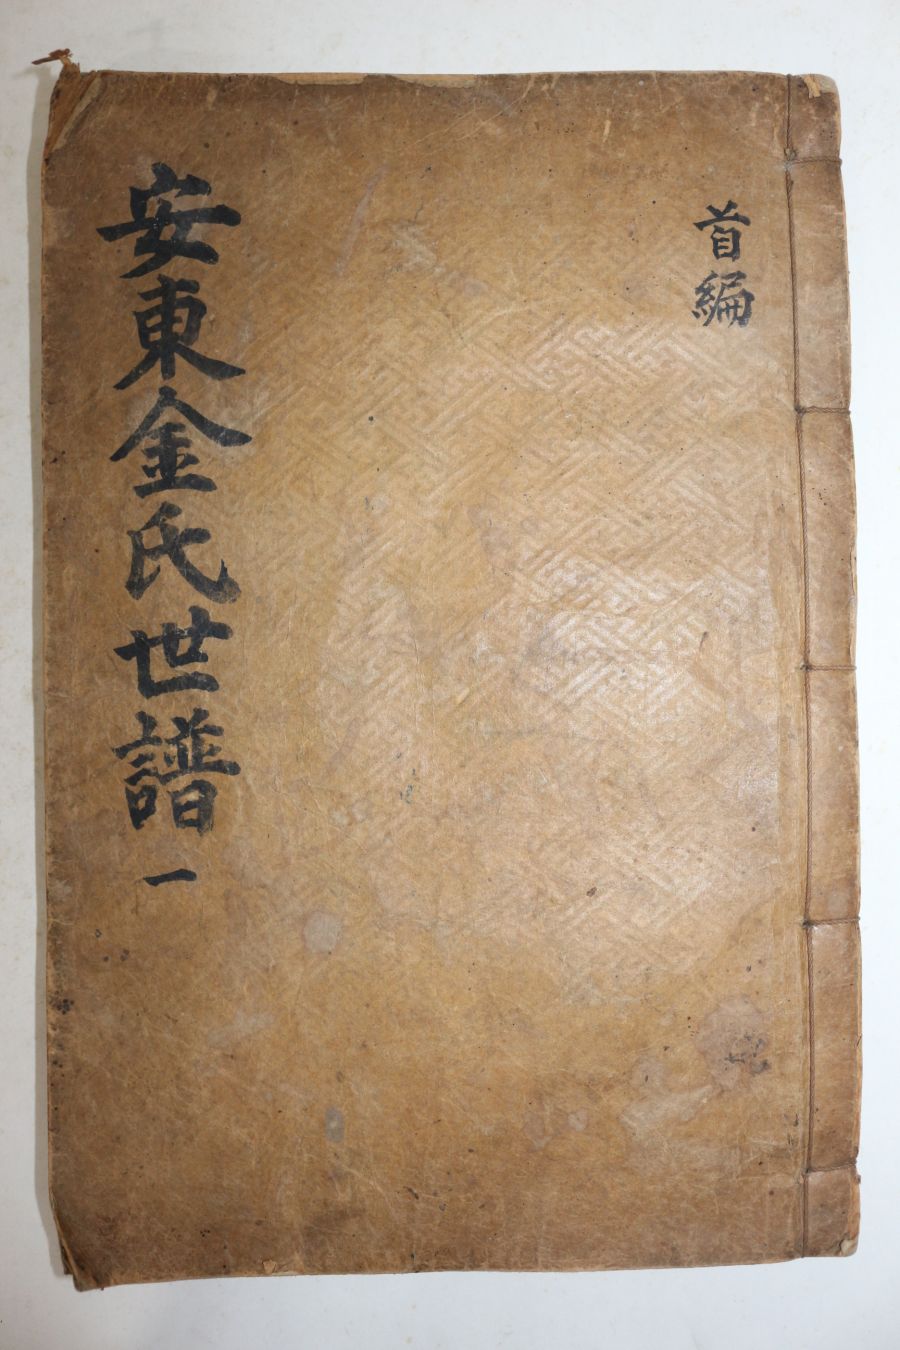 首編
安東金氏世譜 一